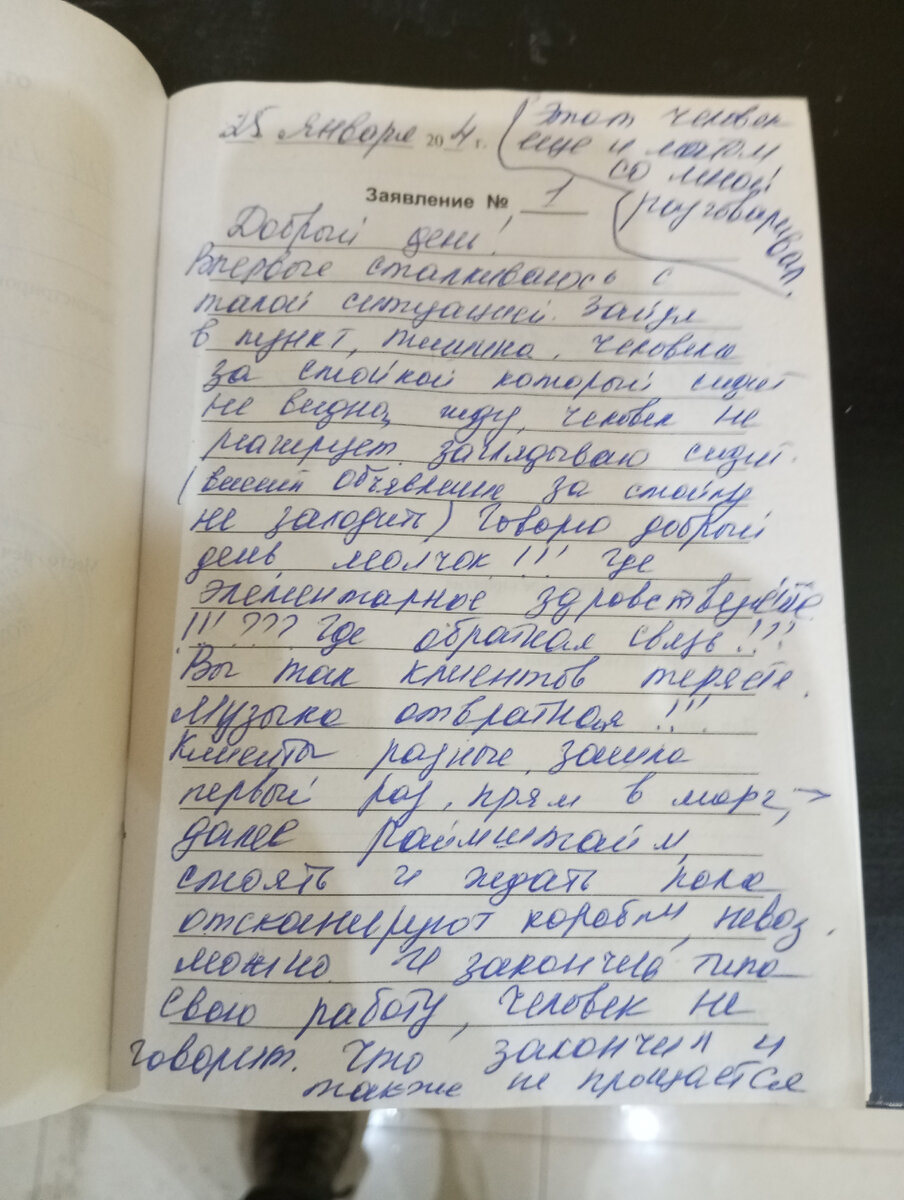 25 января 2024 г.
Заявление № 1
(Этот человек
еще и матом
со мной
разговаривал.
Добрый день!
Впервые сталкиваюсь с
такой ситуацией. Зайдя
в пункт, тишина, человека
за стойкой который сидит
не видно, жду, человек не
реагирует. заглядываю сидит.
(висит объявление за стойку
не заходить) Говорю добрый
день, молчок!!! где
элементарное здравствуйте
!!! ??? где обратная связь!!?
Вы так клиентов теряете.
Музыка отвратная!!!
Клиенты разные, зашла
первый раз, прям в морг, →
далее
стоять и ждать пока
отсканируют коробки, невоз
можно. И закончив типа
свою работу, человек не
говорит. Что закончил и
также не прощается